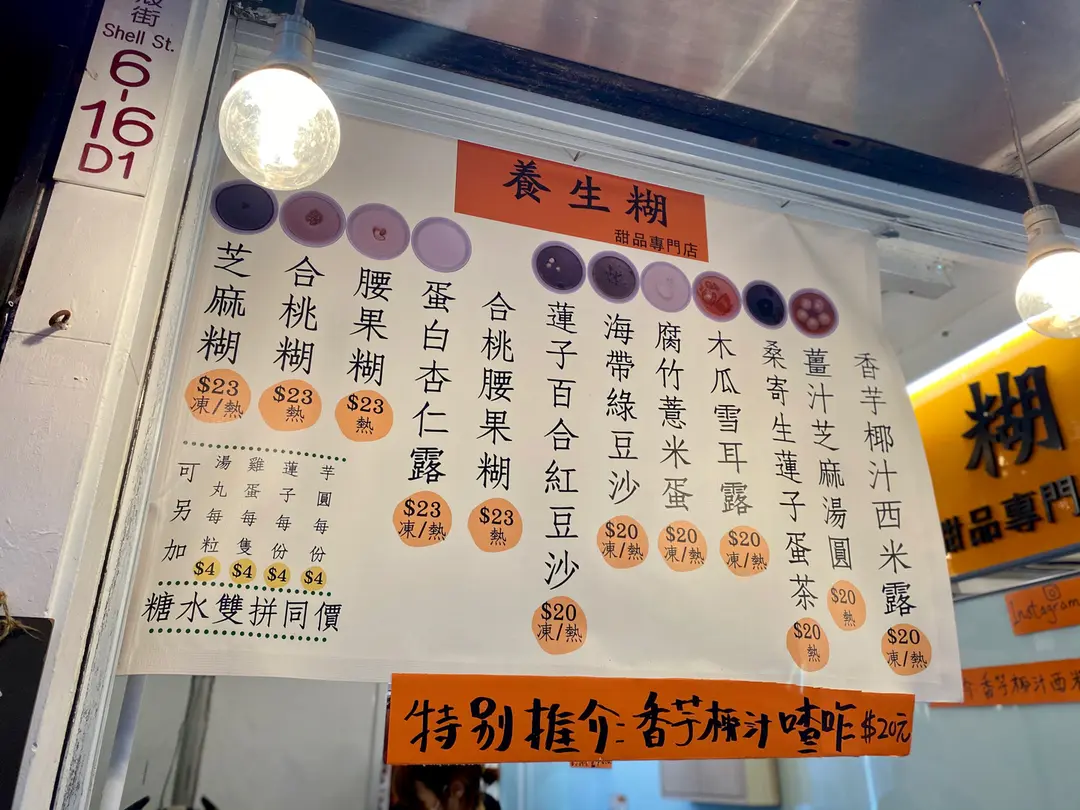 殼街
Shell St.
6-16
D1
養生糊
甜品專門店
芝麻糊
$23
凍/熱
合桃糊
$23
熱
腰果糊
$23
熱
蛋白杏仁露
$23
凍/熱
合桃腰果糊
$23
熱
蓮子百合紅豆沙
$20
凍/熱
海帶綠豆沙
$20
凍/熱
腐竹薏米蛋
$20
凍/熱
木瓜雪耳露
$20
凍/熱
桑寄生蓮子蛋茶
$20
熱
薑汁芝麻湯圓
$20
熱
香芋椰汁西米露
$20
凍/熱
可另加
湯丸每粒
$4
雞蛋每隻
$4
蓮子每份
$4
芋圓每份
$4
糖水雙拼同價
特別推介:香芋椰汁喳咋$20元
糊
甜品專門
Instagram
介:香芋椰汁西米